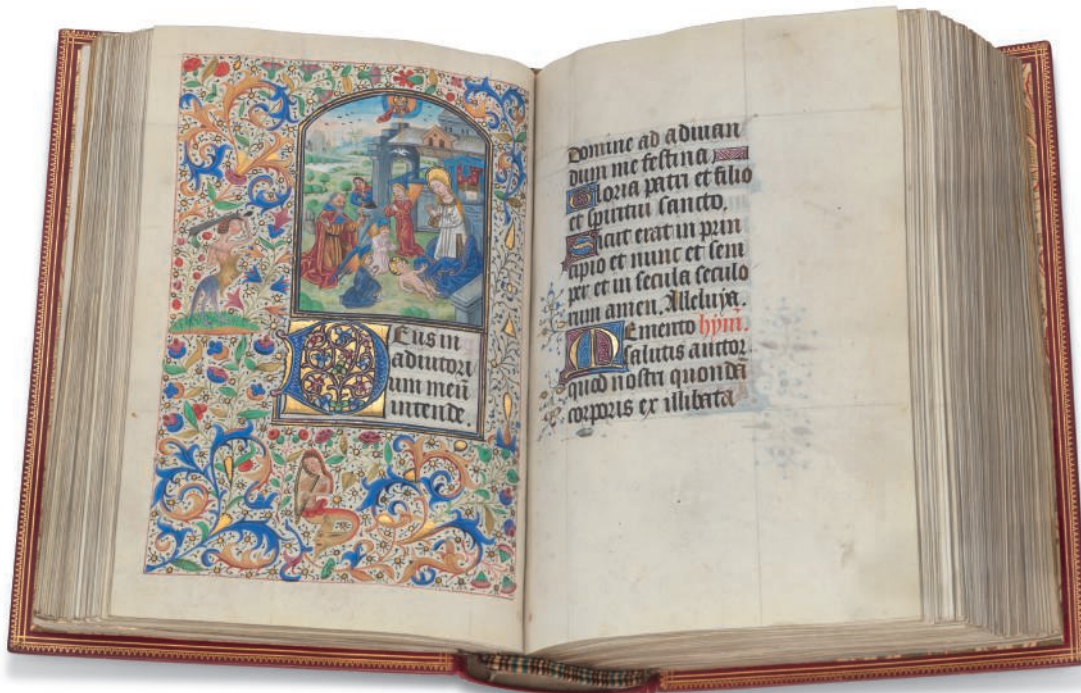 Deus in
adiutori
um meū
intende.
Domine ad adiuuan
dum me festina
Gloria patri et filio
et spiritui sancto.
Sicut erat in prin
cipio et nunc et sem
per et in secula seculo
rum amen. Alleluya.
Memento hym̄.
salutis auctor
quod nostri quondā
corporis ex illibata